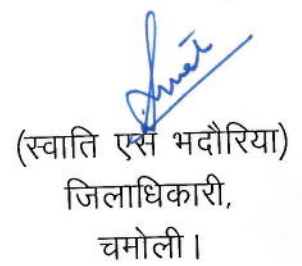 (स्वाति एस भदौरिया)
जिलाधिकारी,
चमोली।